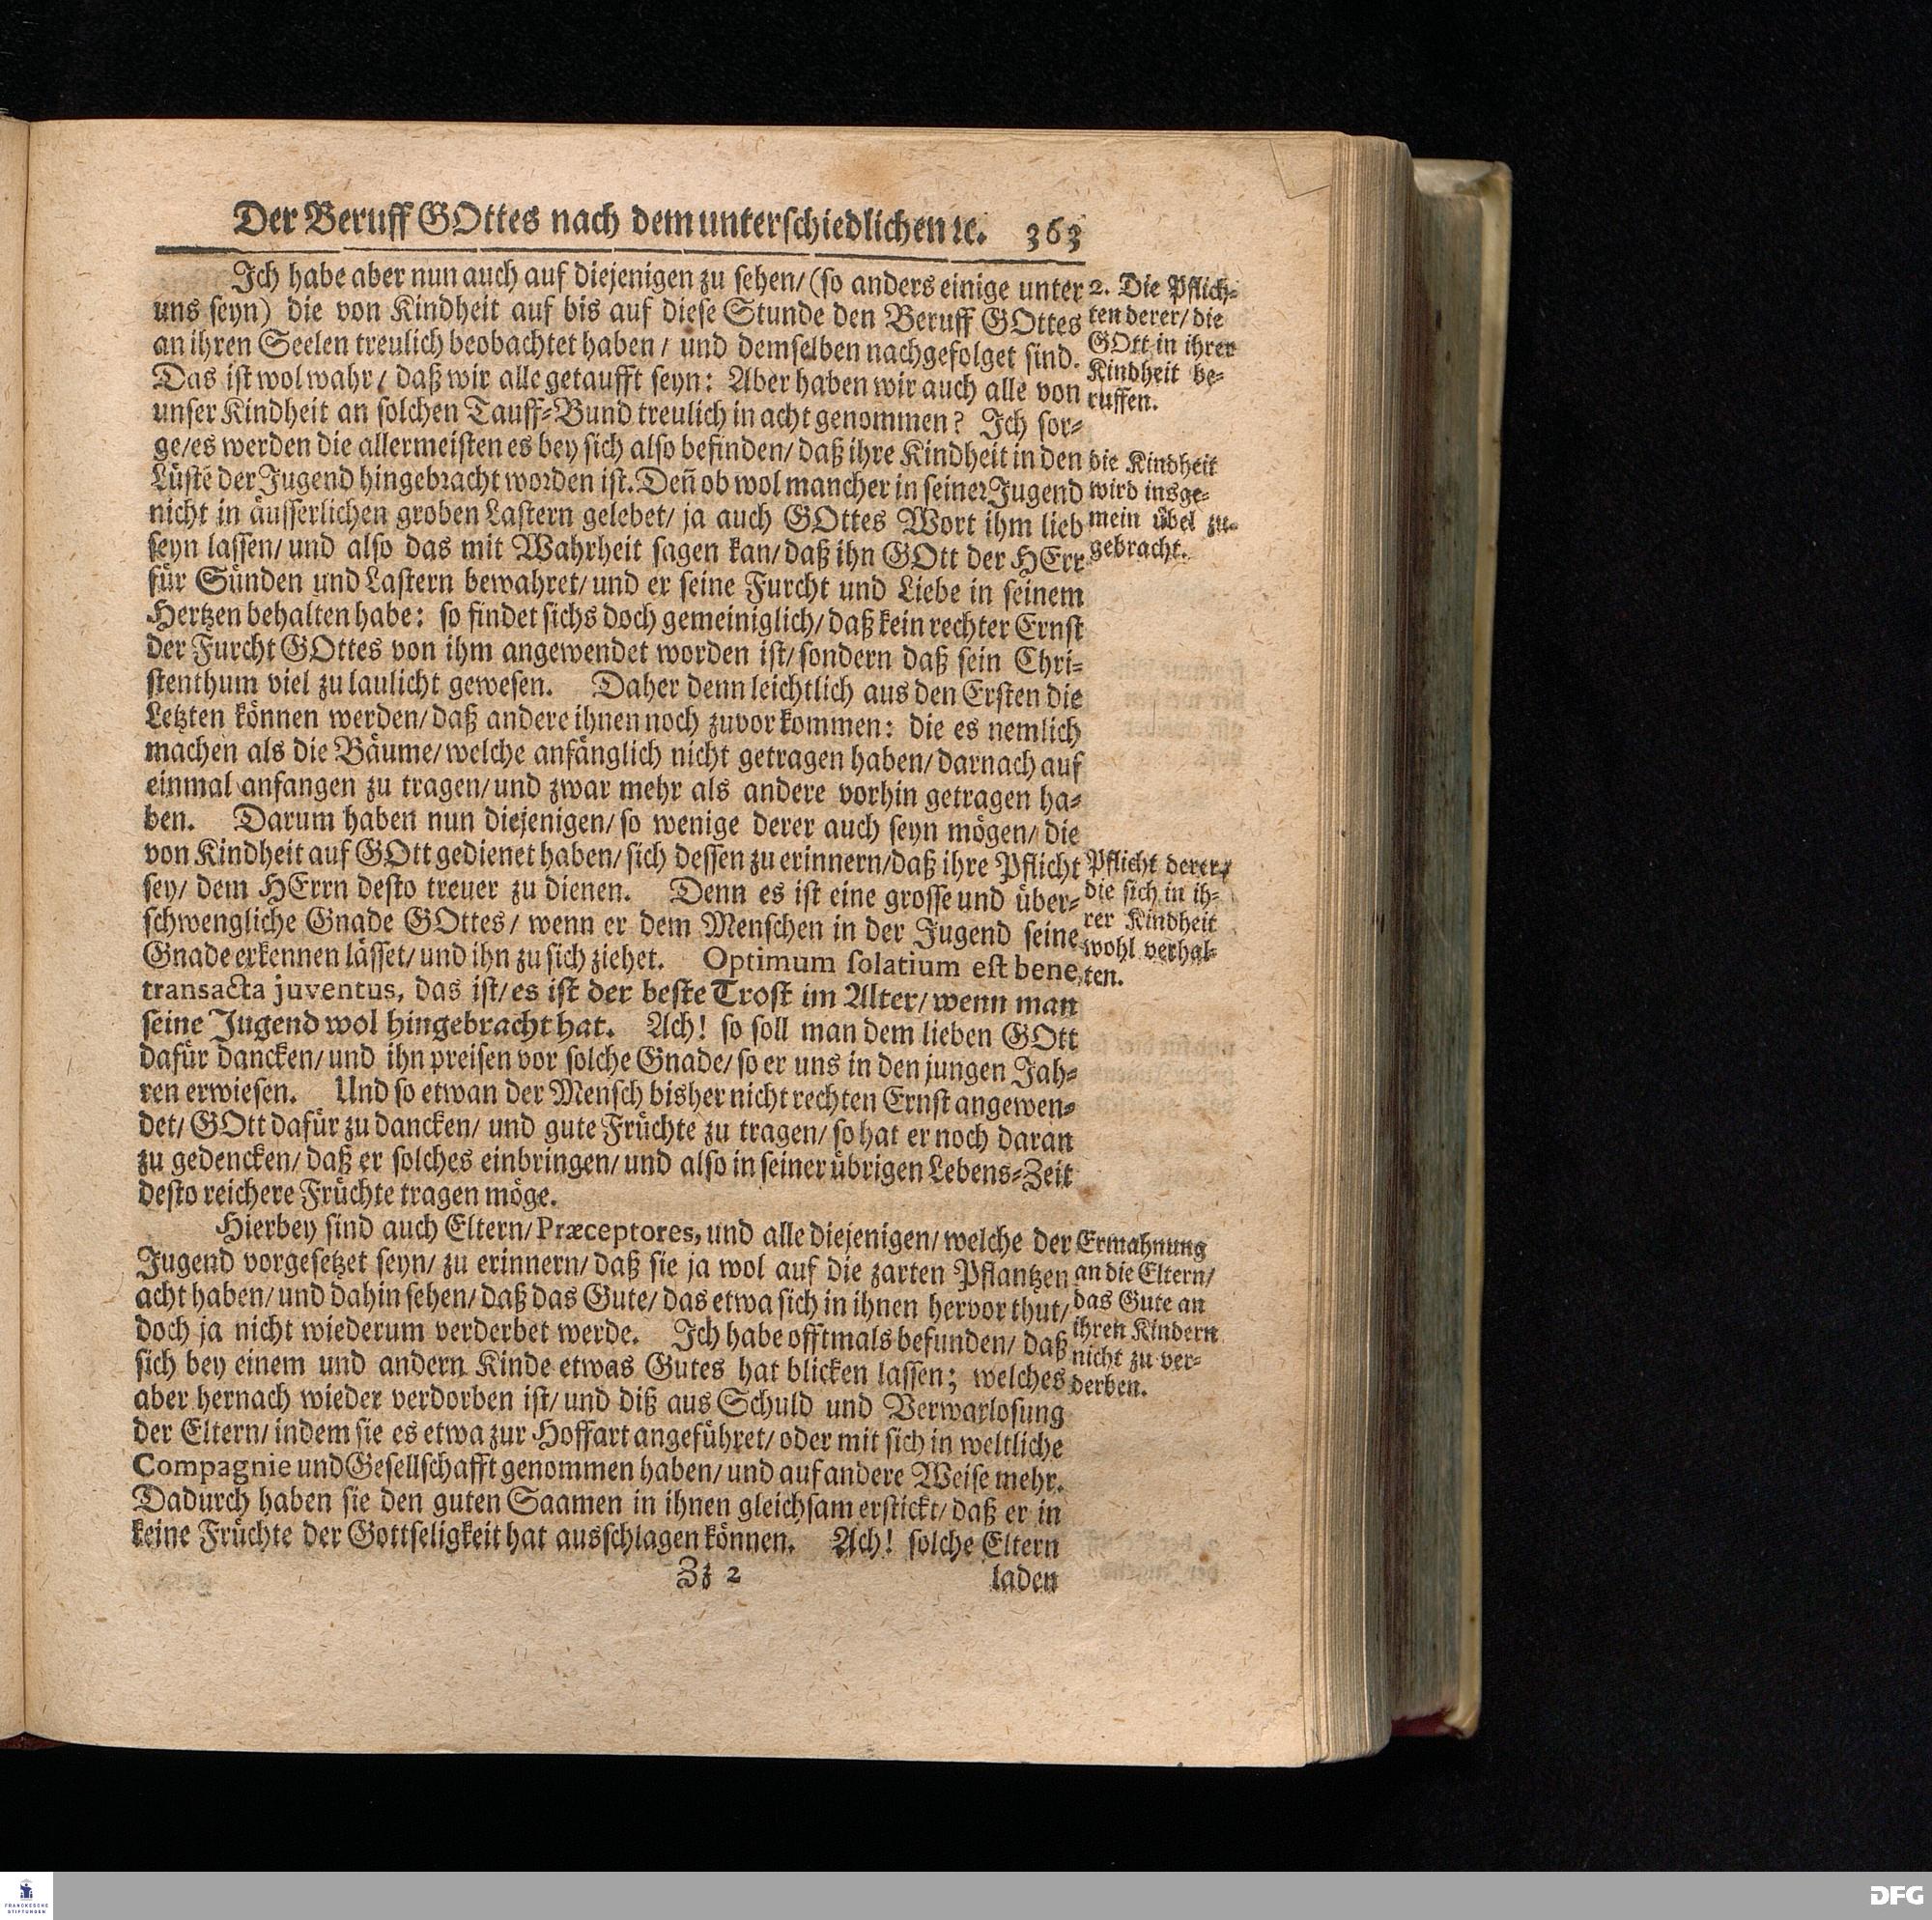 Der Beruff GOttes nach dem unterschiedlichen ꝛc. 363
Ich habe aber nun auch auf diejenigen zu sehen/ (so anders einige unter
uns seyn) die von Kindheit auf bis auf diese Stunde den Beruff GOttes
an ihren Seelen treulich beobachtet haben/ und demselben nachgefolget sind.
Das ist wol wahr/ daß wir alle getaufft seyn: Aber haben wir auch alle von
unser Kindheit an solchen Tauff-Bund treulich in acht genommen? Ich sor-
ge/ es werden die allermeisten es bey sich also befinden/ daß ihre Kindheit in den
Lüste der Jugend hingebracht worden ist. Deñ ob wol mancher in seiner Jugend
nicht in äusserlichen groben Lastern gelebet/ ja auch GOttes Wort ihm lieb
seyn lassen/ und also das mit Wahrheit sagen kan/ daß ihn GOtt der HErr
für Sünden und Lastern bewahret/ und er seine Furcht und Liebe in seinem
Hertzen behalten habe: so findet sichs doch gemeiniglich/ daß kein rechter Ernst
der Furcht GOttes von ihm angewendet worden ist/ sondern daß sein Chri-
stenthum viel zu laulicht gewesen. Daher denn leichtlich aus den Ersten die
Letzten können werden/ daß andere ihnen noch zuvor kommen: die es nemlich
machen als die Bäume/ welche anfänglich nicht getragen haben/ darnach auf
einmal anfangen zu tragen/ und zwar mehr als andere vorhin getragen ha-
ben. Darum haben nun diejenigen/ so wenige derer auch seyn mögen/ die
von Kindheit auf GOtt gedienet haben/ sich dessen zu erinnern/ daß ihre Pflicht
sey/ dem HErrn desto treuer zu dienen. Denn es ist eine grosse und über-
schwengliche Gnade GOttes/ wenn er dem Menschen in der Jugend seine
Gnade erkennen lässet/ und ihn zu sich ziehet. Optimum solatium est bene
transacta juventus, das ist/ es ist der beste Trost im Alter/ wenn man
seine Jugend wol hingebracht hat. Ach! so soll man dem lieben GOtt
dafür dancken/ und ihn preisen vor solche Gnade/ so er uns in den jungen Jah-
ren erwiesen. Und so etwan der Mensch bisher nicht rechten Ernst angewen-
det/ GOtt dafür zu dancken/ und gute Früchte zu tragen/ so hat er noch daran
zu gedencken/ daß er solches einbringen/ und also in seiner übrigen Lebens-Zeit
desto reichere Früchte tragen möge.
Hierbey sind auch Eltern/ Præceptores, und alle diejenigen/ welche der
Jugend vorgesetzet seyn/ zu erinnern/ daß sie ja wol auf die zarten Pflantzen
acht haben/ und dahin sehen/ daß das Gute/ das etwa sich in ihnen hervor thut/
doch ja nicht wiederum verderbet werde. Ich habe offtmals befunden/ daß
sich bey einem und andern Kinde etwas Gutes hat blicken lassen; welches
aber hernach wieder verdorben ist/ und diß aus Schuld und Verwarlosung
der Eltern/ indem sie es etwa zur Hoffart angeführet/ oder mit sich in weltliche
Compagnie und Gesellschafft genommen haben/ und auf andere Weise mehr.
Dadurch haben sie den guten Saamen in ihnen gleichsam erstickt/ daß er in
keine Früchte der Gottseligkeit hat ausschlagen können. Ach! solche Eltern
Zz 2 laden
2. Die Pflich-
ten derer/ die
GOtt in ihrer
Kindheit be-
ruffen.
die Kindheit
wird insge-
mein übel zu-
gebracht.
Pflicht derer/
die sich in ih-
rer Kindheit
wohl verhal-
ten.
Ermahnung
an die Eltern/
das Gute an
ihren Kindern
nicht zu ver-
derben.
FRANCKESCHE
STIFTUNGEN
DFG